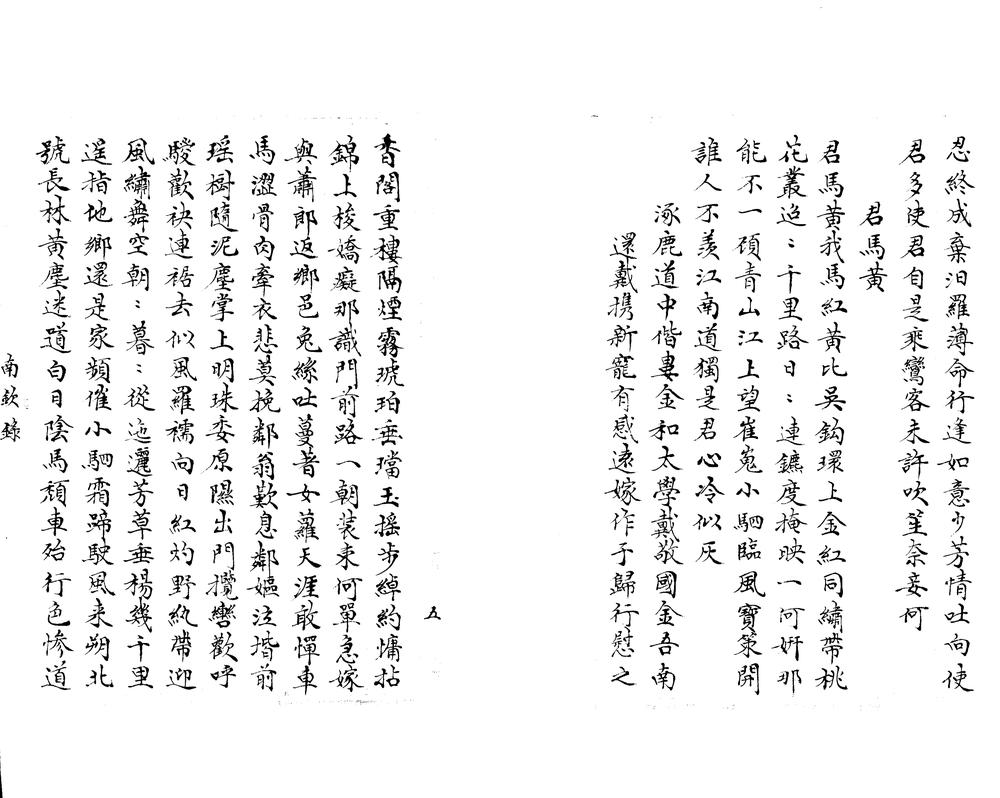 忍終成棄汨羅薄命行逢如意少芳情吐向使
君多使君自是乘鸞客未許吹笙奈妾何
君馬黃
君馬黃我馬紅黃比吳鈎環上金紅同繡帶桃
花叢迢〻千里路日〻連鑣度掩映一何妍那
能不一顧青山江上望崔嵬小駟臨風寶策開
誰人不羨江南道獨是君心冷似灰
涿鹿道中偕婁金和太學戴敬國金吾南
還戴携新寵有感遠嫁作于歸行慰之
五
香閣重樓隔煙霧琥珀垂璫玉搖步綽約慵拈
錦上梭嬌癡那識門前路一朝装束何單急嫁
與蕭郎返鄉邑兔絲吐蔓著女蘿天涯敢憚車
馬澀骨肉牽衣悲莫挽鄰翁歎息鄰嫗泣堦前
瑶樹隨泥塵掌上明珠委原隰出門攬轡歡呼
騣歡袂連裾去似風羅襦向日紅灼野紈帶迎
風繡舞空朝〻暮〻從迤邐芳草垂楊幾千里
遥指地鄉還是家頻催小駟霜蹄駛風来朔北
號長林黃塵迷道白日陰馬頹車殆行色慘道
南歸錄